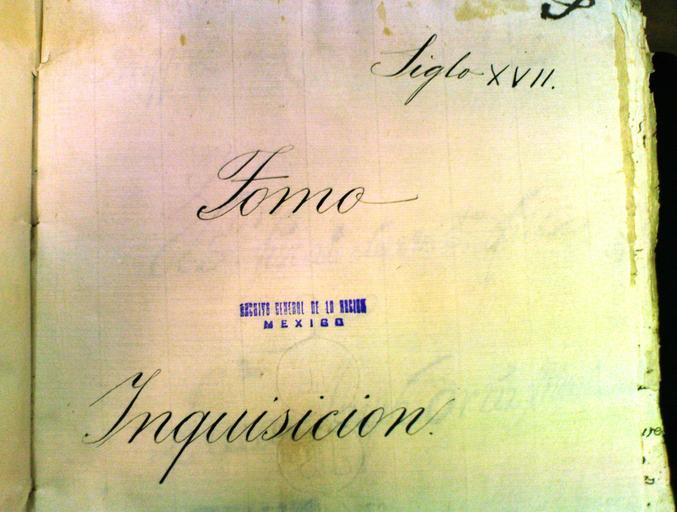 Siglo XVII.
Tomo
ARCHIVO GENERAL DE LA NACION
MEXICO
Inquisicion.